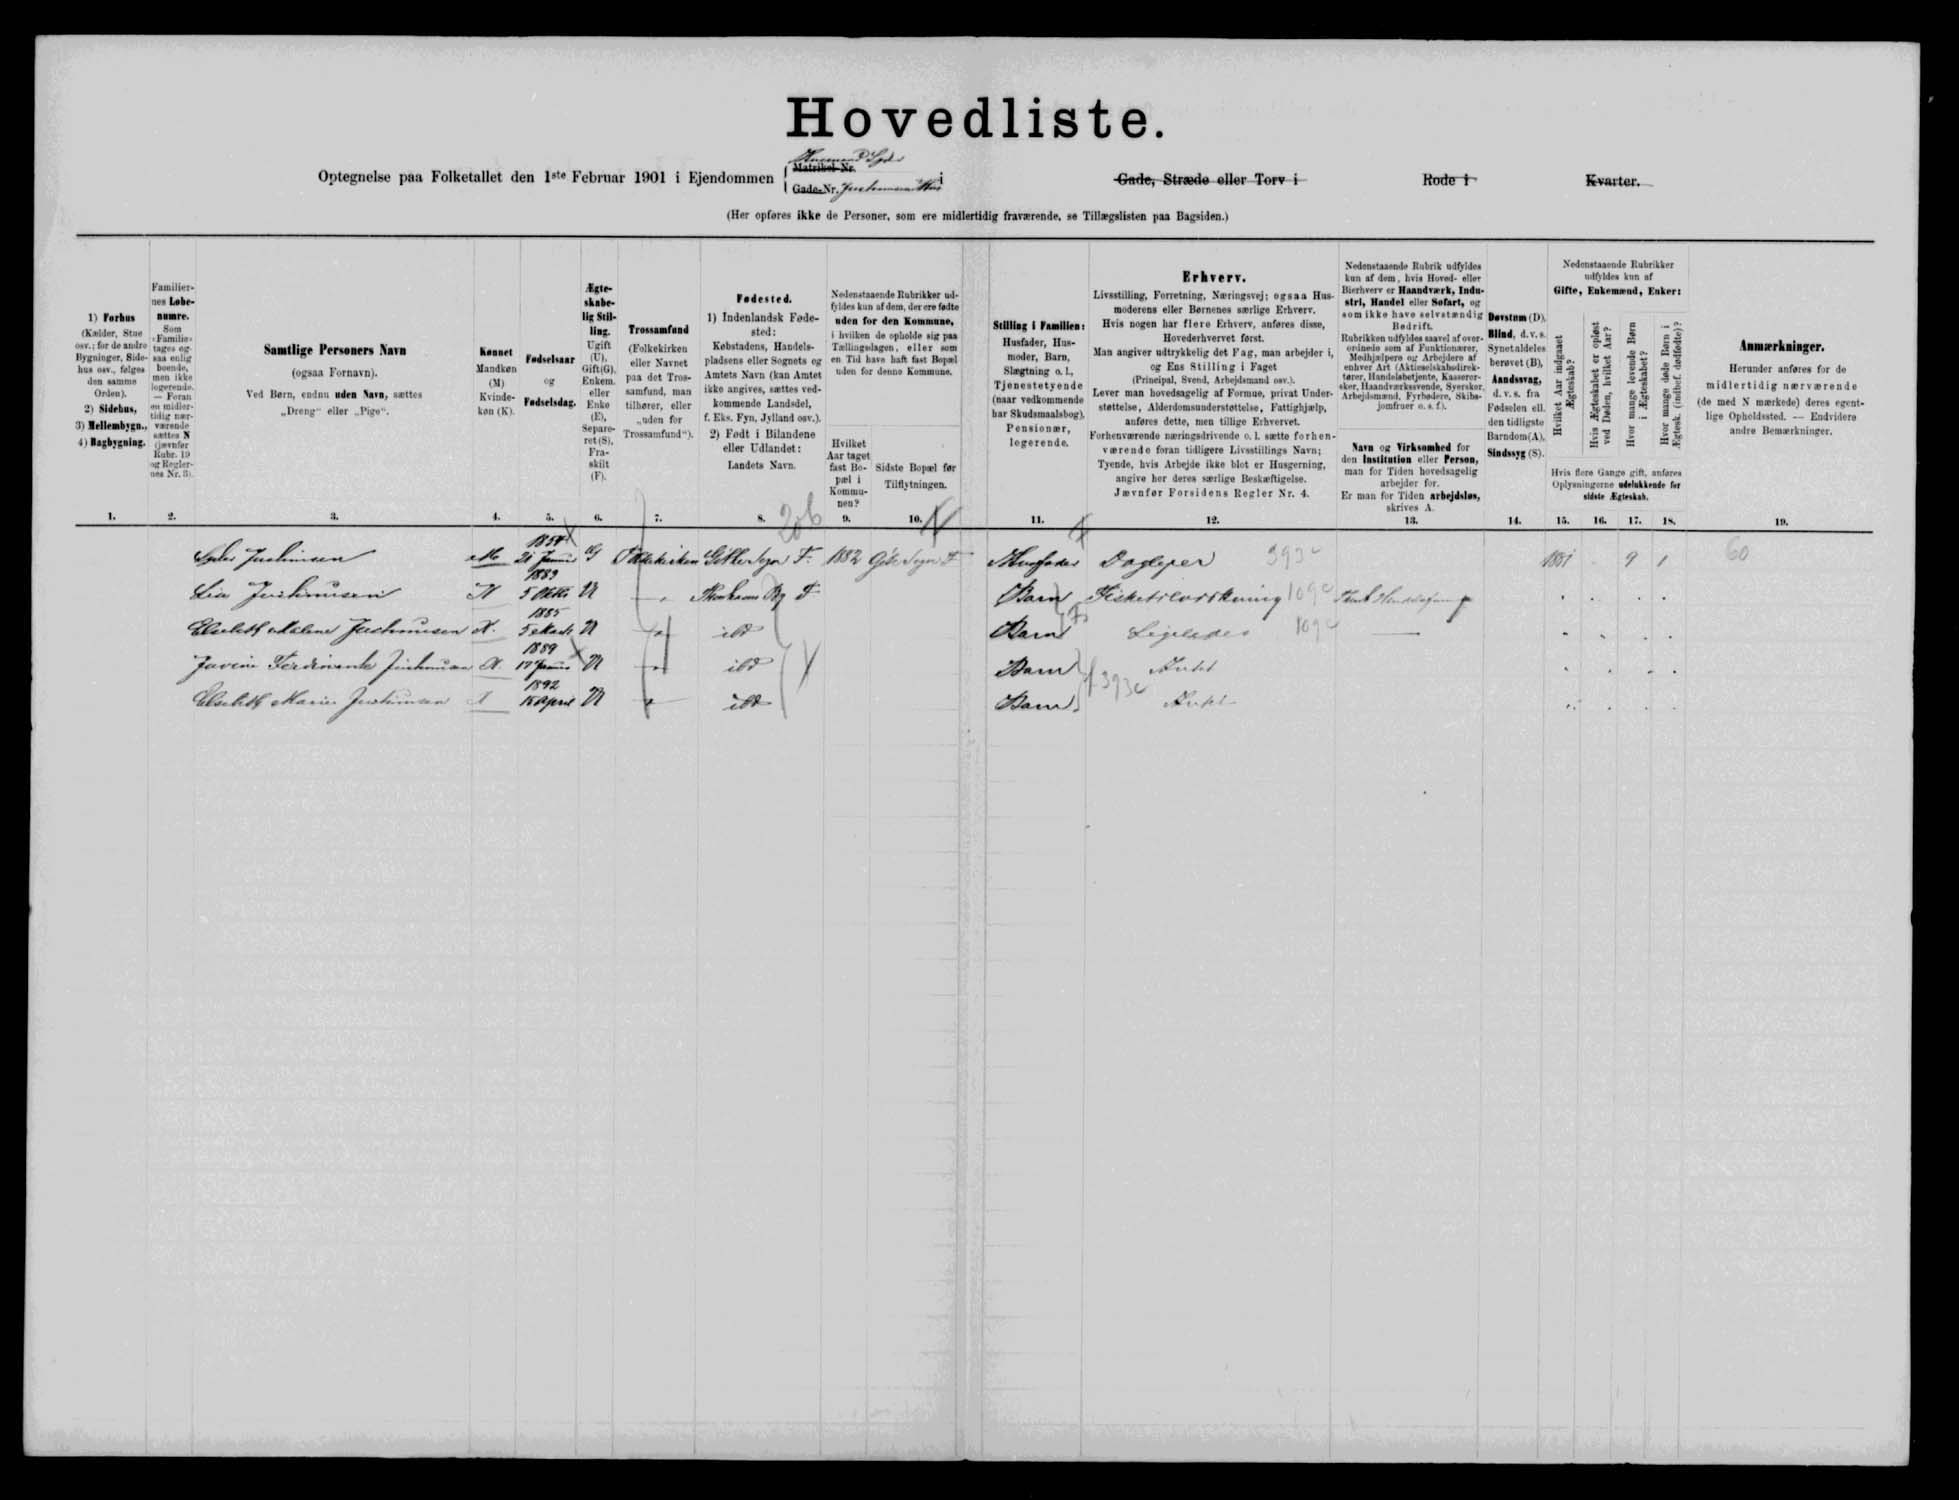 Hovedliste.
Optegnelse paa Folketallet den 1ste Februar 1901 i Ejendommen
Matrikel-Nr.
Gade-Nr. i
Gade, Stræde eller Torv i Rode i Kvarter.
(Her opføres ikke de Personer, som ere midlertidig fraværende, se Tillægslisten paa Bagsiden.)
1) Forhus
(Kælder, Stue
osv.; for de andre
Bygninger, Side-
hus osv., følges
den samme
Orden).
2) Sidehus,
3) Mellembygn.,
4) Bagbygning.
Familier-
nes Løbe-
numre.
Som
»Familie»
tages og-
saa enlig
boende,
men ikke
logerende.
— Foran
en midler-
tidig nær-
værende
sættes N
(jævnfør
Rubr. 19
og Regler-
nes Nr. 3).
Samtlige Personers Navn
(ogsaa Fornavn).
Ved Børn, endnu uden Navn, sættes
„Dreng" eller „Pige".
Kønnet
Mandkøn
(M)
Kvinde-
køn (K).
Fødselsaar
og
Fødselsdag.
Ægte-
skabe-
lig Stil-
ling.
Ugift
(U).
Gift(G).
Enkem.
eller
Enke
(E),
Separe-
ret (S),
Fra-
skilt
(F).
Trossamfund
(Folkekirken
eller Navnet
paa det Tros-
samfund, man
tilhører, eller
„uden for
Trossamfund").
Fødested.
1) Indenlandsk Føde-
sted:
Købstadens, Handels-
pladsens eller Sognets og
Amtets Navn (kan Amtet
ikke angives, sættes ved-
kommende Landsdel,
f. Eks. Fyn, Jylland osv.).
2) Født i Bilandene
eller Udlandet:
Landets Navn.
Nedenstaaende Rubrikker ud-
fyldes kun af dem, der ere fødte
uden for den Kommune,
i hvilken de opholde sig paa
Tællingsdagen, eller som
en Tid have haft fast Bopæl
uden for denne Kommune.
Hvilket
Aar taget
fast Bo-
pæl i
Kommu-
nen?
Sidste Bopæl før
Tilflytningen.
Stilling i Familien:
Husfader, Hus-
moder, Barn,
Slægtning o. l.,
Tjenestetyende
(naar vedkommende
har Skudsmaalsbog),
Pensionær,
logerende.
Erhverv.
Livsstilling, Forretning, Næringsvej; ogsaa Hus-
moderens eller Børnenes særlige Erhverv.
Hvis nogen har flere Erhverv, anføres disse,
Hovederhvervet først.
Man angiver udtrykkelig det Fag, man arbejder i,
og Ens Stilling i Faget
(Principal, Svend, Arbejdsmand osv.).
Lever man hovedsagelig af Formue, privat Under-
støttelse, Alderdomsunderstøttelse, Fattighjælp,
anføres dette, men tillige Erhvervet.
Forhenværende næringsdrivende o. l. sætte forhen-
værende foran tidligere Livsstillings Navn;
Tyende, hvis Arbejde ikke blot er Husgerning,
angive her deres særlige Beskæftigelse.
Jævnfør Forsidens Regler Nr. 4.
Nedenstaaende Rubrik udfyldes
kun af dem, hvis Hoved- eller
Bierhverv er Haandværk, Indu-
stri, Handel eller Søfart, og
som ikke have selvstændig
Bedrift.
Rubrikken udfyldes saavel af over-
ordnede som af Funktionærer,
Medhjælpere og Arbejdere af
enhver Art (Aktieselskabsdirek-
tører, Handelsbetjente, Kasserer-
sker, Haandværkssvende, Syersker,
Arbejdsmænd, Fyrbødere, Skibs-
jomfruer o. s. f.).
Navn og Virksomhed for
den Institution eller Person,
man for Tiden hovedsagelig
arbejder for.
Er man for Tiden arbejdsløs,
skrives A.
Døvstum (D).
Blind, d. v. s.
Synet aldeles
berøvet (B),
Aandssvag,
d. v. s. fra
Fødselen ell.
den tidligste
Barndom (A),
Sindssyg (S).
Nedenstaaende Rubrikker
udfyldes kun af
Gifte, Enkemænd, Enker:
Hvilket Aar indgaaet
Ægteskab?
Hvis Ægteskabet er opløst
ved Døden, hvilket Aar?
Hvor mange levende Børn
i Ægteskabet?
Hvor mange døde Børn i
Ægtesk. (indbef. dødfødte)?
Hvis flere Gange gift, anføres
Oplysningerne udelukkende for
sidste Ægteskab.
Anmærkninger.
Herunder anføres for de
midlertidig nærværende
(de med N mærkede) deres egent-
lige Opholdssted. — Endvidere
andre Bemærkninger.
1. 2. 3. 4. 5. 6. 7. 8. 9. 10. 11. 12. 13. 14. 15. 16. 17. 18. 19.
206
Justinussen M 1854 21 Januar G Folkekirken Sogn F. 1882 Sogn F Husfader Daglejer 393c 1881 9 1 60
Lisa Justinussen K 1883 5 Oktbr U " Thorshavns By F Barn Fisketilvirkning 109c
Elsebeth Malene Justinussen K. 1885 5 Marts U " ibd Barn Ligeledes 109c
Justinussen K. 1889 17 Januar U " ibd Barn Intet
Elsebeth Marie Justinussen K 1892 15 April U " ibd Barn 393c Intet